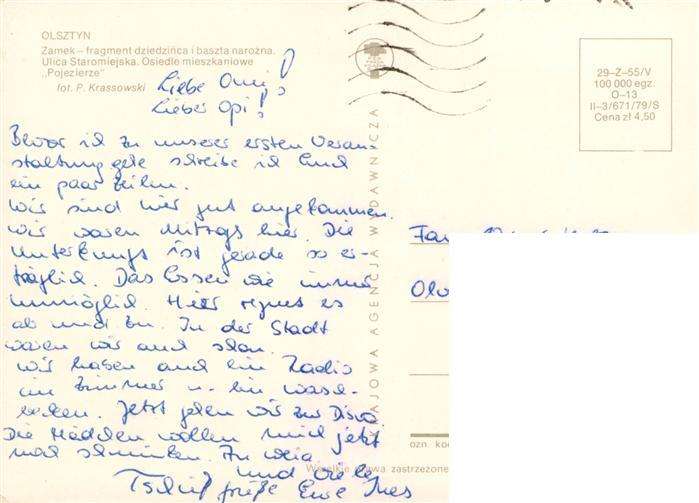 OLSZTYN
Zamek – fragment dziedzińca i baszta narożna.
Ulica Staromiejska. Osiedle mieszkaniowe
„Pojezierze"
fot. P. Krassowski
Liebe Omi!
Lieber Opi!
Bevor ich zu unserer ersten Veran-
staltung gehe schreibe ich Euch
ein paar Zeilen.
Wir sind hier gut angekommen.
Wir waren Mittags hier. Die
Unterkunft ist gerade so er-
träglich. Das Essen wie immer
unmöglich. Hier regnet es
ab und zu. In der Stadt
waren wir auch schon.
Wir haben auch ein Radio
im Zimmer u. ein Wasch-
becken. Jetzt gehen wir zur Disco.
Die Mädchen wollen mich jetzt
mal schminken.
und viele
Tschüß Grüße Eure Ines
29–Z–55/V
100 000 egz.
O–13
II–3/671/79/S
Cena zł 4,50
KRAJOWA AGENCJA WYDAWNICZA
Fam.
ozn. kod
zastrzeżone